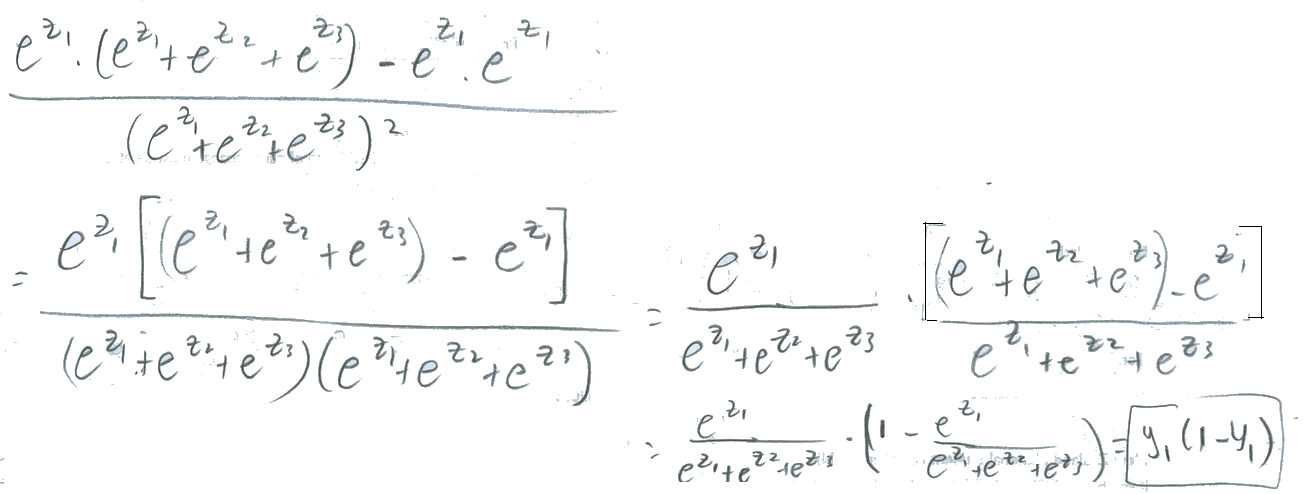 \frac{e^{z_1} \cdot (e^{z_1} + e^{z_2} + e^{z_3}) - e^{z_1} \cdot e^{z_1}}{(e^{z_1} + e^{z_2} + e^{z_3})^2}
= \frac{e^{z_1} [(e^{z_1} + e^{z_2} + e^{z_3}) - e^{z_1}]}{(e^{z_1} + e^{z_2} + e^{z_3})(e^{z_1} + e^{z_2} + e^{z_3})} = \frac{e^{z_1}}{e^{z_1} + e^{z_2} + e^{z_3}} \cdot \frac{[(e^{z_1} + e^{z_2} + e^{z_3}) - e^{z_1}]}{e^{z_1} + e^{z_2} + e^{z_3}}
= \frac{e^{z_1}}{e^{z_1} + e^{z_2} + e^{z_3}} \cdot (1 - \frac{e^{z_1}}{e^{z_1} + e^{z_2} + e^{z_3}}) = \boxed{y_1 (1 - y_1)}